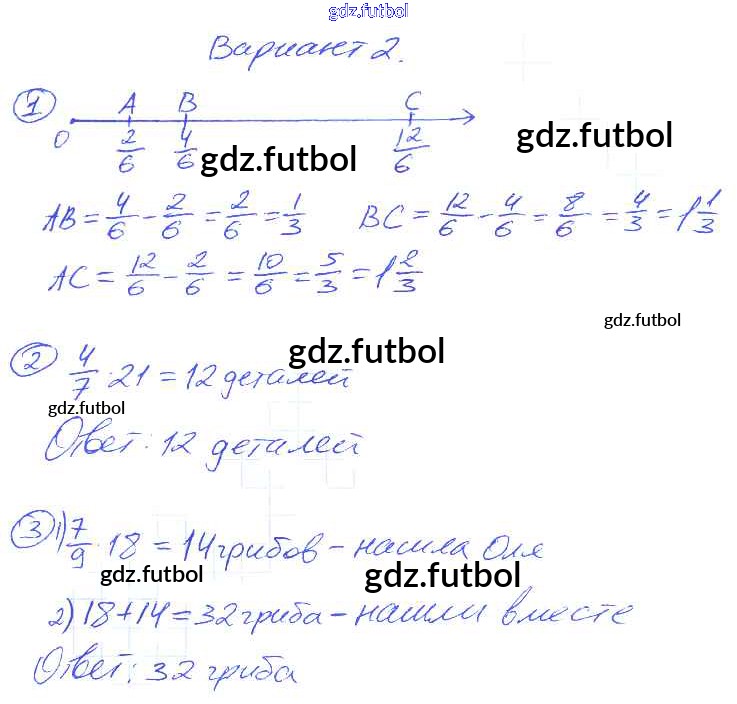 gdz.futbol
Вариант 2.
1 A B C
0 2/6 4/6 12/6
gdz.futbol gdz.futbol
AB = 4/6 - 2/6 = 2/6 = 1/3 BC = 12/6 - 4/6 = 8/6 = 4/3 = 1 1/3
AC = 12/6 - 2/6 = 10/6 = 5/3 = 1 2/3
gdz.futbol
gdz.futbol
2 4/7 · 21 = 12 деталей
gdz.futbol
Ответ: 12 деталей
3 1) 7/9 · 18 = 14 грибов - нашла Оля
gdz.futbol gdz.futbol
2) 18 + 14 = 32 гриба - нашли вместе
Ответ: 32 гриба